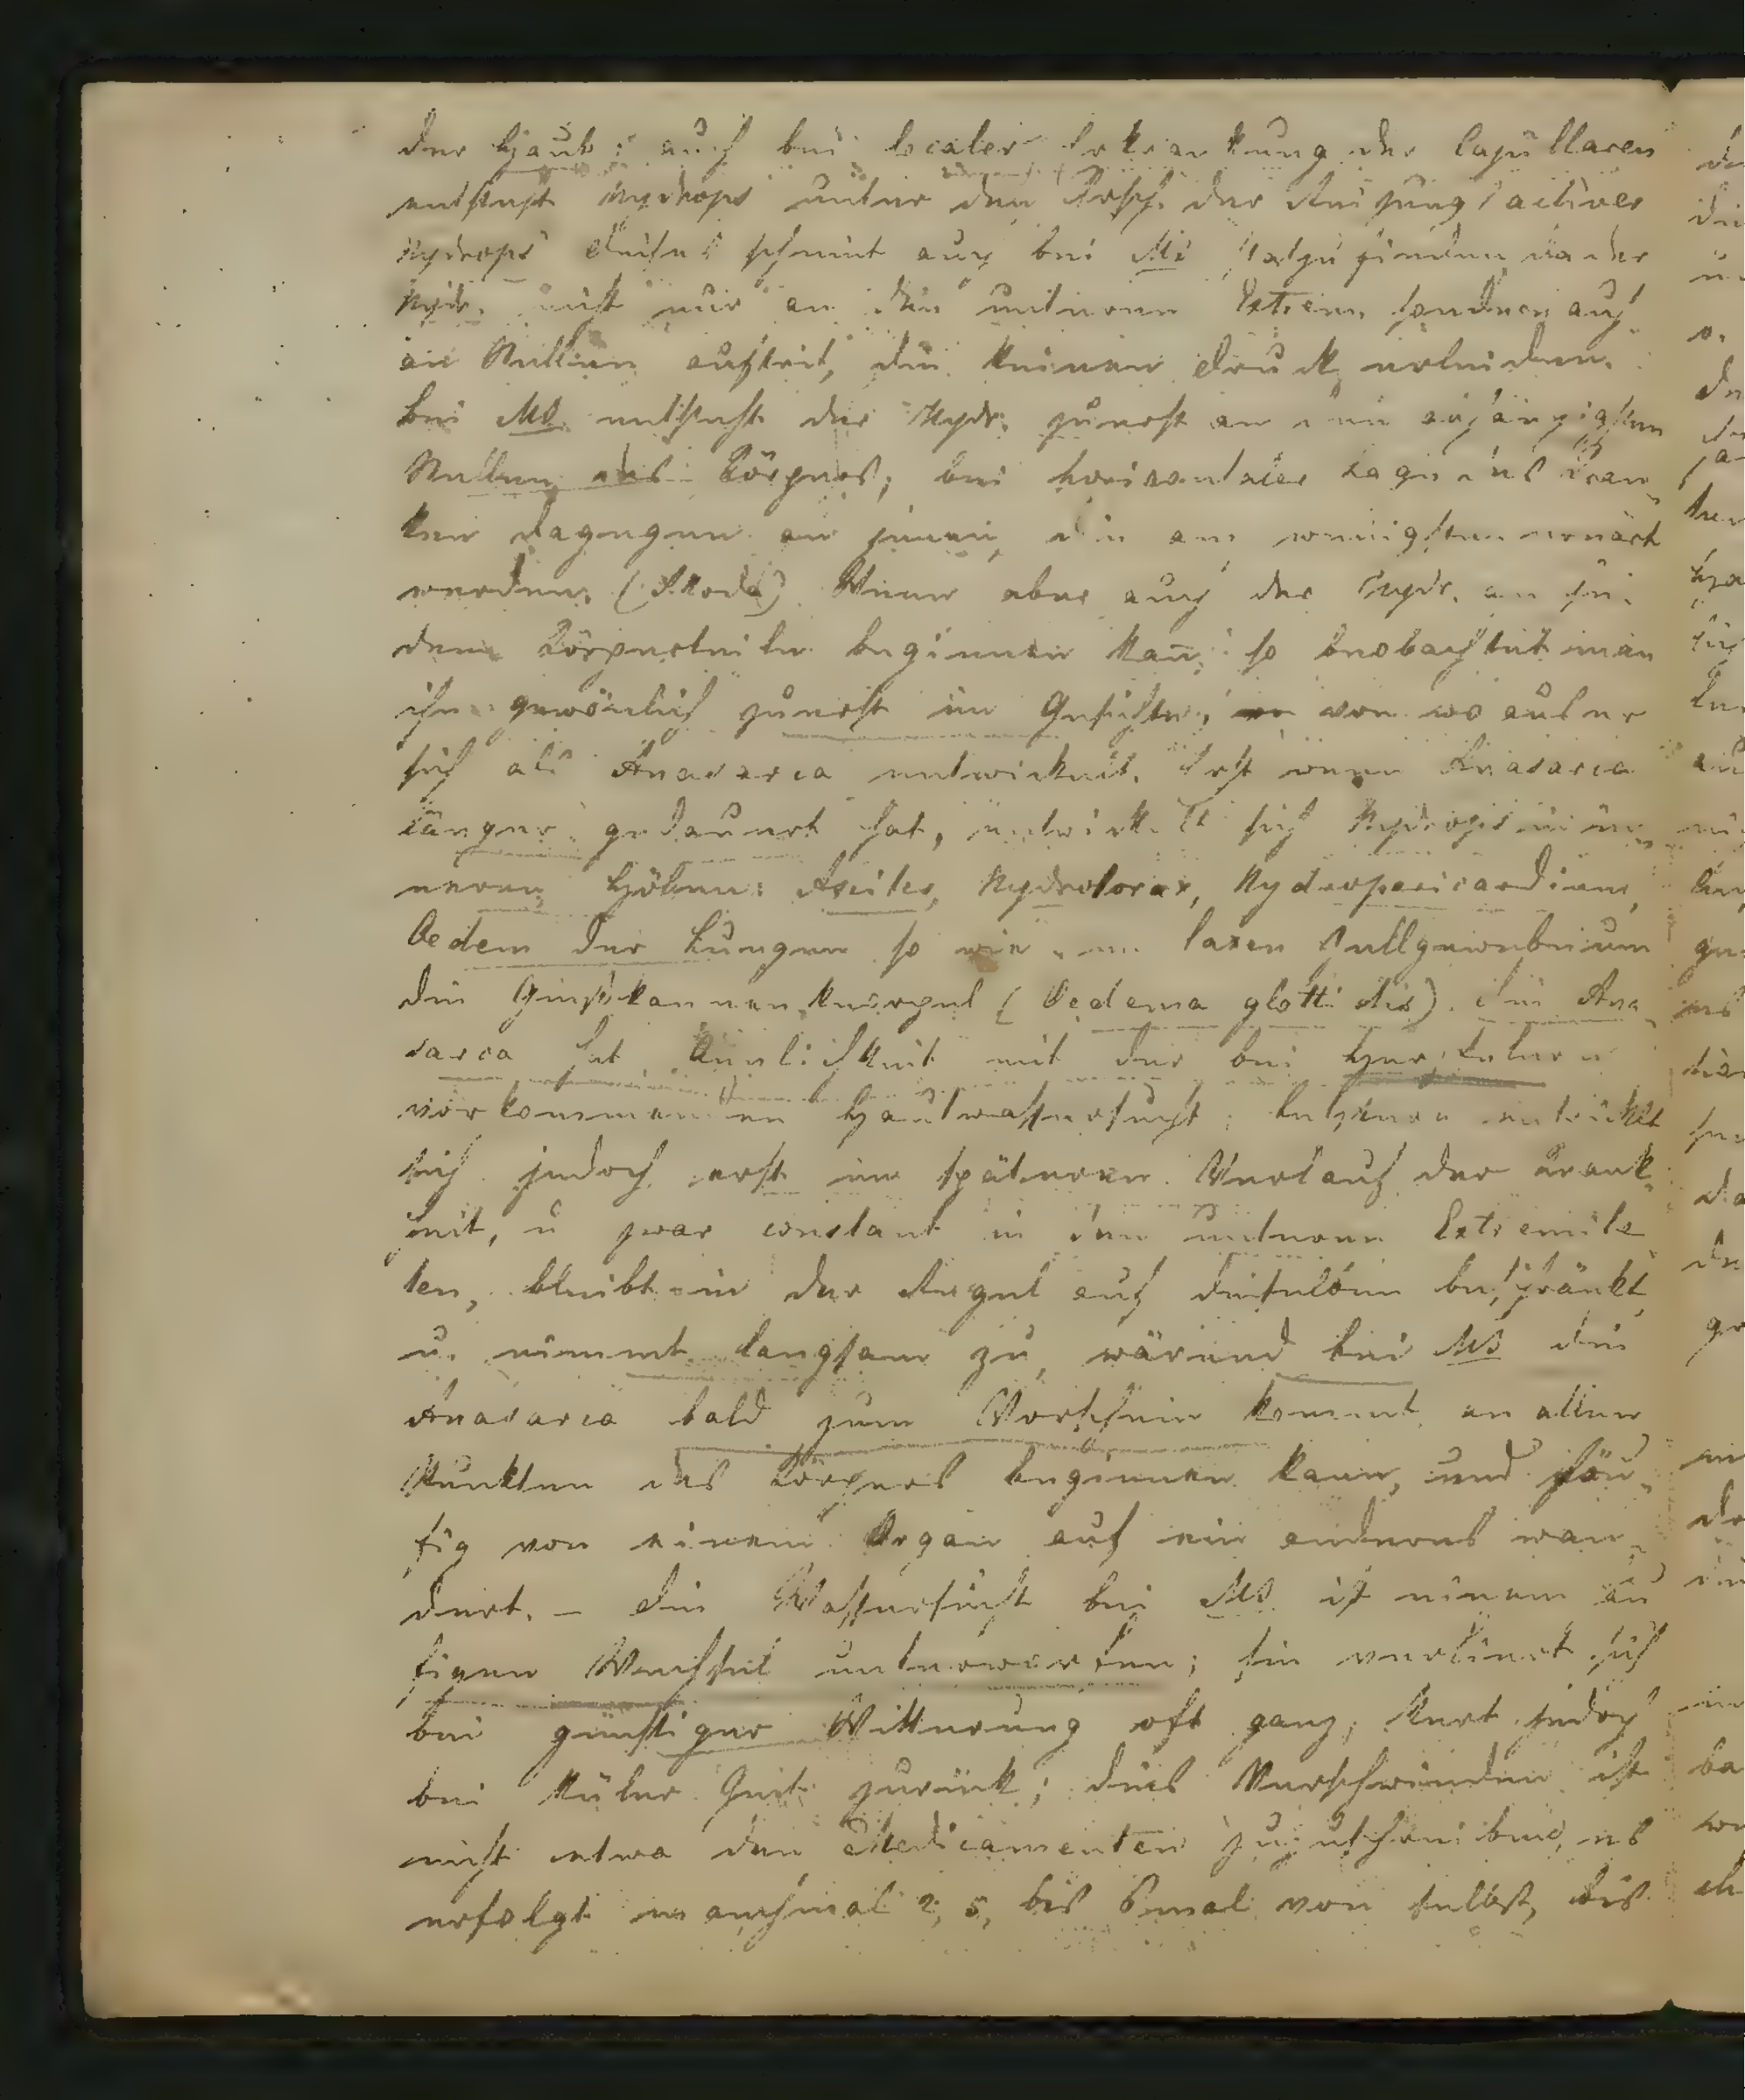 der Haut; auch bei localer Erkrankung der Capillaren
entsteht Hydrops unter den Ersch. der Reizung (activer
Hydrops dieses scheint auch bei MB statzufinden, da der
Hydr. nicht nur an den unteren Extrem. sondern auch
an Stellen auftrit, die keinen Druck erleiden.
bei MB. entsteht der Hydr. zuerst an den abhängigsten
Stellen des Körpers; bei horizontaler Lage des Kran-
ken dagegen an jenen, die am wenigsten erwärt
werden. (Skoda) Wenn aber auch der Hydr. an je-
dem Körperteile beginnen kan, so beobachtet man
ihn gewönlich zuerst im Gesichte, von wo aus er
sich als Anasarca entwickelt. Erst wenn Anasarca
länger gedauert hat, entwickelt sich Hydrops in in-
neren Hölen: Ascites, Hydrotorax, Hydropericardium,
Oedem der Lungen so wie im laxen Zellgewebe um
die Gieskannenknorpel (Oedema glottidis). Die Ana-
sarca hat Aenlichkeit mit der bei Herzkleren
vorkommenden Hautwassersucht; leztere entwickelt
sich jedoch erst im späteren Verlauf der Krank-
heit, u zwar constant in den unteren Extremitä-
ten, bleibt in der Regel auf dieselben beschränkt,
u. nimmt langsam zu, wärend bei MB die
Anasarca bald zum Vorschein kommt, an allen
Punkten des Körpers beginnen kann, und häu-
fig von einem Organ auf ein anderes wan-
dert. – Die Wassersucht bei MB ist einem häu-
figen Wechsel unterworfen; sie verliert sich
bei günstiger Witterung oft ganz, kert jedoch
bei küler Zeit zurück; dies Verschwinden ist
nicht etwa den Medicamenten zuzuschreiben, es
erfolgt manchmal 2, 5, bis 6mal von selbst, bis